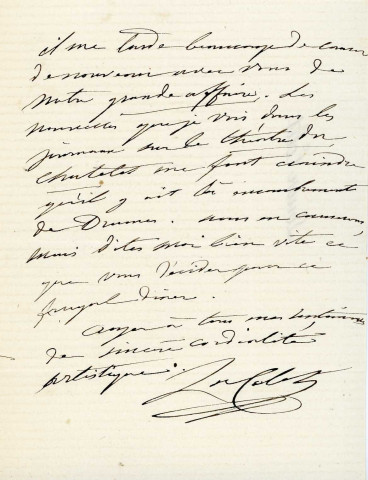 il me tarde beaucoup de causer
de nouveau avec vous de
notre grande affaire. Les
nouvelles que je vois dans les
journaux sur le théâtre du
chatelet me font craindre
qu'il y ait là encombrement
de Drames. nous en causerons
mais dites moi bien vite ce
que vous décidez pour ce
frugal diner.
à tous mes sentiments
de sincère cordialité
artistique.